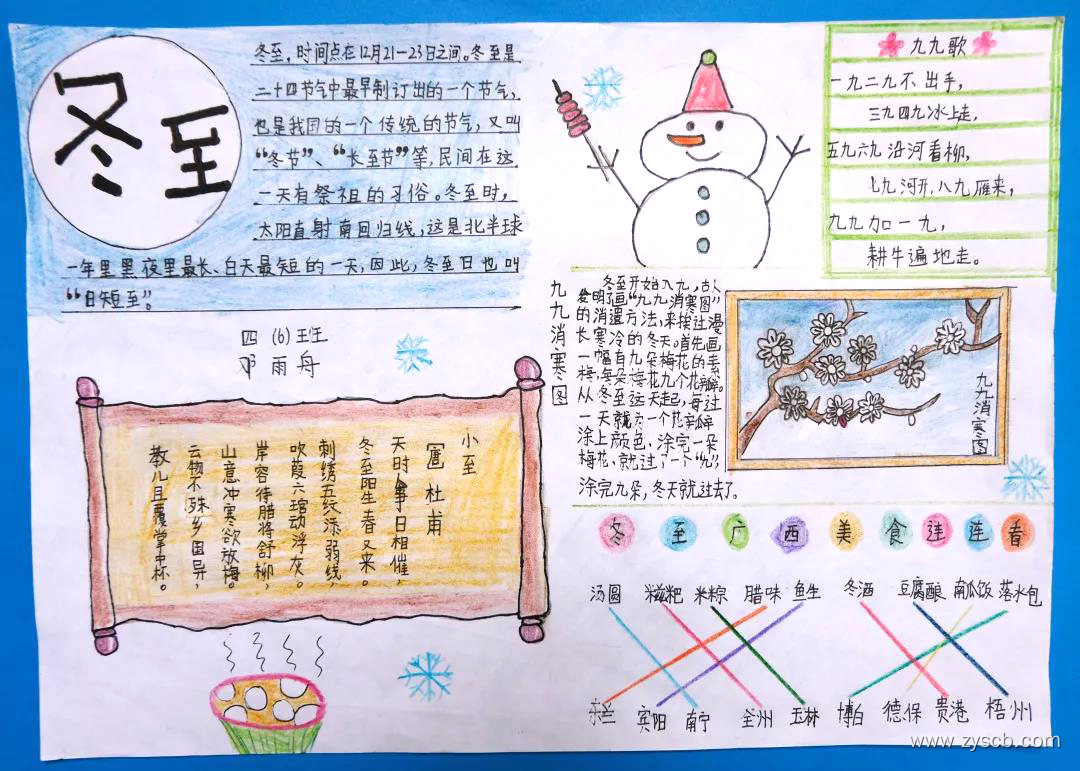 冬至
冬至，时间点在12月21—23日之间。冬至是
二十四节气中最早制订出的一个节气，
也是我国的一个传统的节气，又叫
“冬节”、“长至节”等，民间在这
一天有祭祖的习俗。冬至时，
太阳直射南回归线，这是北半球
一年里黑夜里最长、白天最短的一天，因此，冬至日也叫
“日短至”。
四(6)班
邓雨舟
小至
杜甫
天时人事日相催，
冬至阳生春又来。
刺绣五纹添弱线，
吹葭六琯动浮灰。
岸容待腊将舒柳，
山意冲寒欲放梅。
云物不殊乡国异，
教儿且覆掌中杯。
九九歌
一九二九不出手，
三九四九冰上走，
五九六九沿河看柳，
七九河开，八九雁来，
九九加一九，
耕牛遍地走。
九九消寒图
冬至开始入九，古人
发明了画“九九消寒图”
的消遣方法，来挨过漫
长寒冷的冬天。首先画
一幅有九朵梅花的素
梅，每朵梅花九个花瓣。
从冬至这天起，每过
一天就为一个花瓣
涂上颜色，涂完一朵
梅花，就过了一个“九”
涂完九朵，冬天就过去了。
九九消寒图
冬至广西美食连连看
汤圆 糍粑 米粽 腊味 鱼生 冬酒 豆腐酿 南瓜饭 落水包
东兰 宾阳 南宁 全州 玉林 博白 德保 贵港 梧州
www.zyscb.com